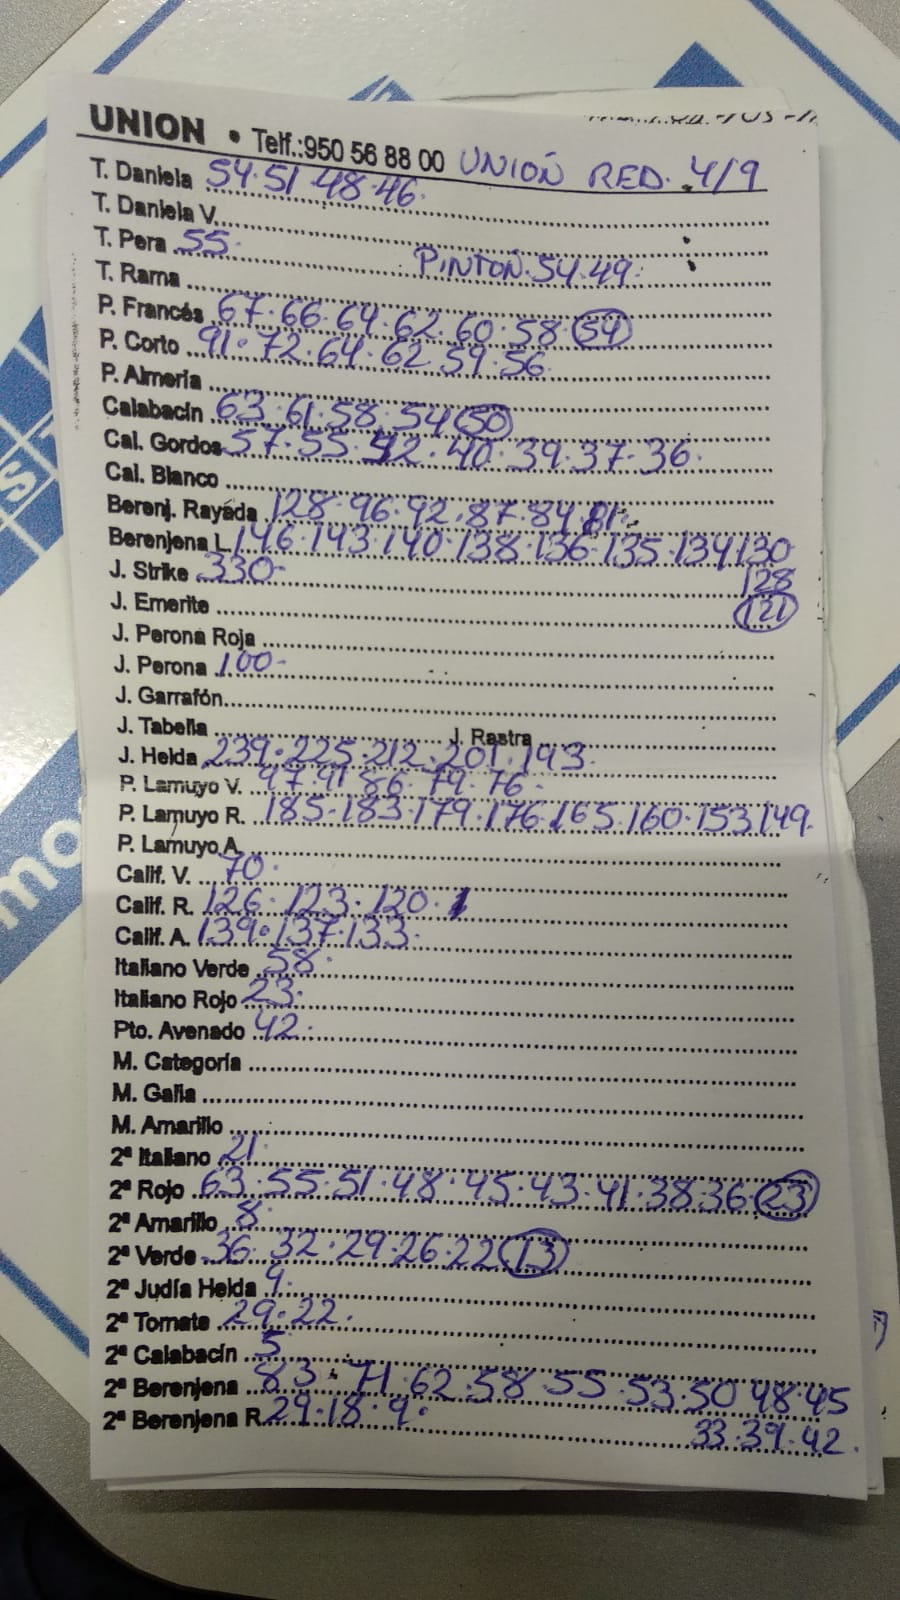 UNION • Telf.:950 56 88 00 UNIÓN RED. 4/9
T. Daniela 54·51·48·46·
T. Daniela V.
T. Pera 55· PINTÓN·54·49·
T. Rama
P. Francés 67·66·64·62·60·58 54
P. Corto 91·72·64·62·59·56
P. Almería
Calabacín 63·61·58·54 50
Cal. Gordos 57·55·42·40·39·37·36·
Cal. Blanco
Berenj. Rayada 128·96·92·87·84·81·
Berenjena L 146·143·140·138·136·135·134 130
J. Strike 330- 128
J. Emerite 121
J. Perona Roja
J. Perona 100-
J. Garrafón
J. Tabella J. Rastra
J. Helda 239·225·212·201·193·
P. Lamuyo V. 97·91·86·79·76-
P. Lamuyo R. 185-183·179·176·165·160·153 149.
P. Lamuyo A.
Calif. V. 70·
Calif. R. 126·123·120·
Calif. A. 139·137·133·
Italiano Verde 58·
Italiano Rojo 23·
Pto. Avenado 42·
M. Categoría
M. Galia
M. Amarillo
2ª Italiano 21·
2ª Rojo 63·55·51·48·45·43·41·38·36· 23
2ª Amarillo 8·
2ª Verde 36·32·29·26·22 13
2ª Judía Helda 9·
2ª Tomate 29·22·
2ª Calabacín 5·
2ª Berenjena 83·71·62·58·55·53·50 48·45
2ª Berenjena R. 29·18·9· 33·39·42.